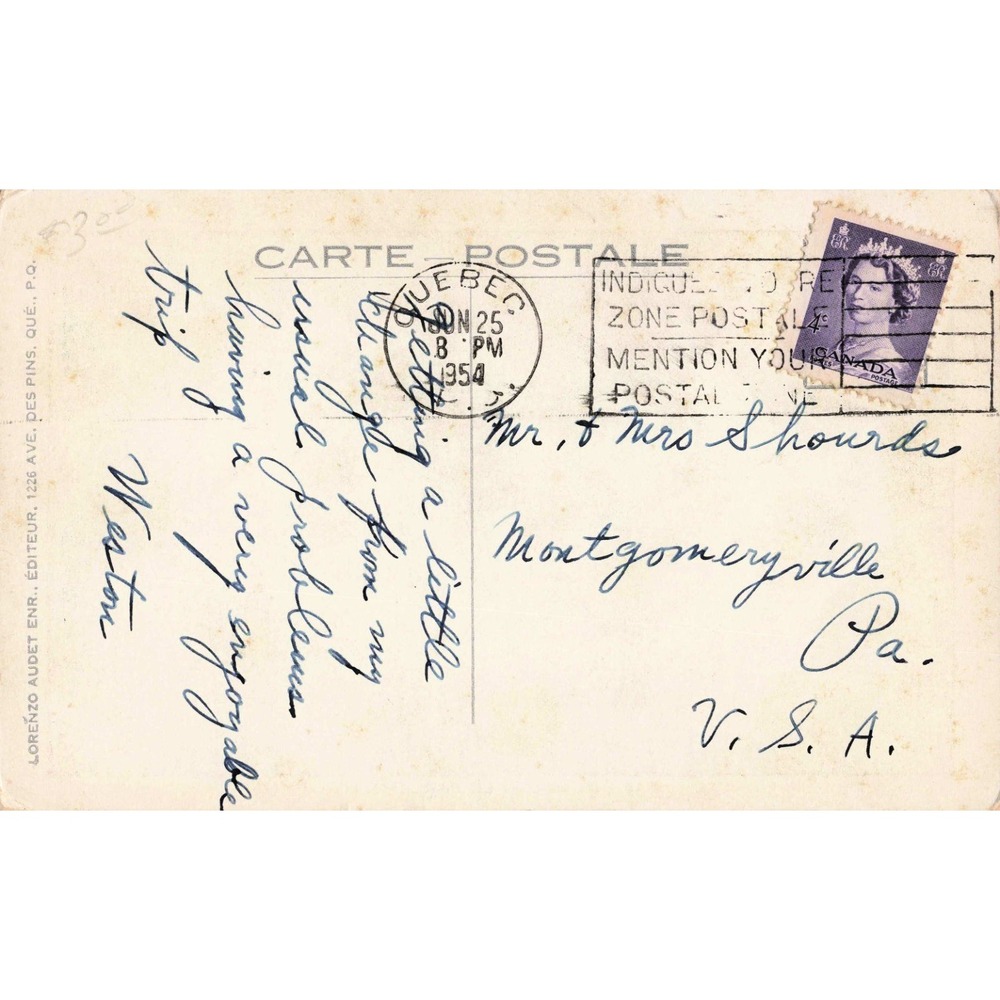 3.00
CARTE POSTALE
QUEBEC
JUN 25
8 PM
1954
P.Q.
INDIQUEZ VOTRE
ZONE POSTALE
MENTION YOUR
POSTAL ZONE
4¢
CANADA
POSTES POSTAGE
Getting a little
change from my
usual problems
having a very enjoyable
trip
Weston
Mr. & Mrs Shourds
Montgomeryville
Pa.
U. S. A.
LORENZO AUDET ENR., ÉDITEUR, 1226 AVE. DES PINS, QUÉ., P.Q.